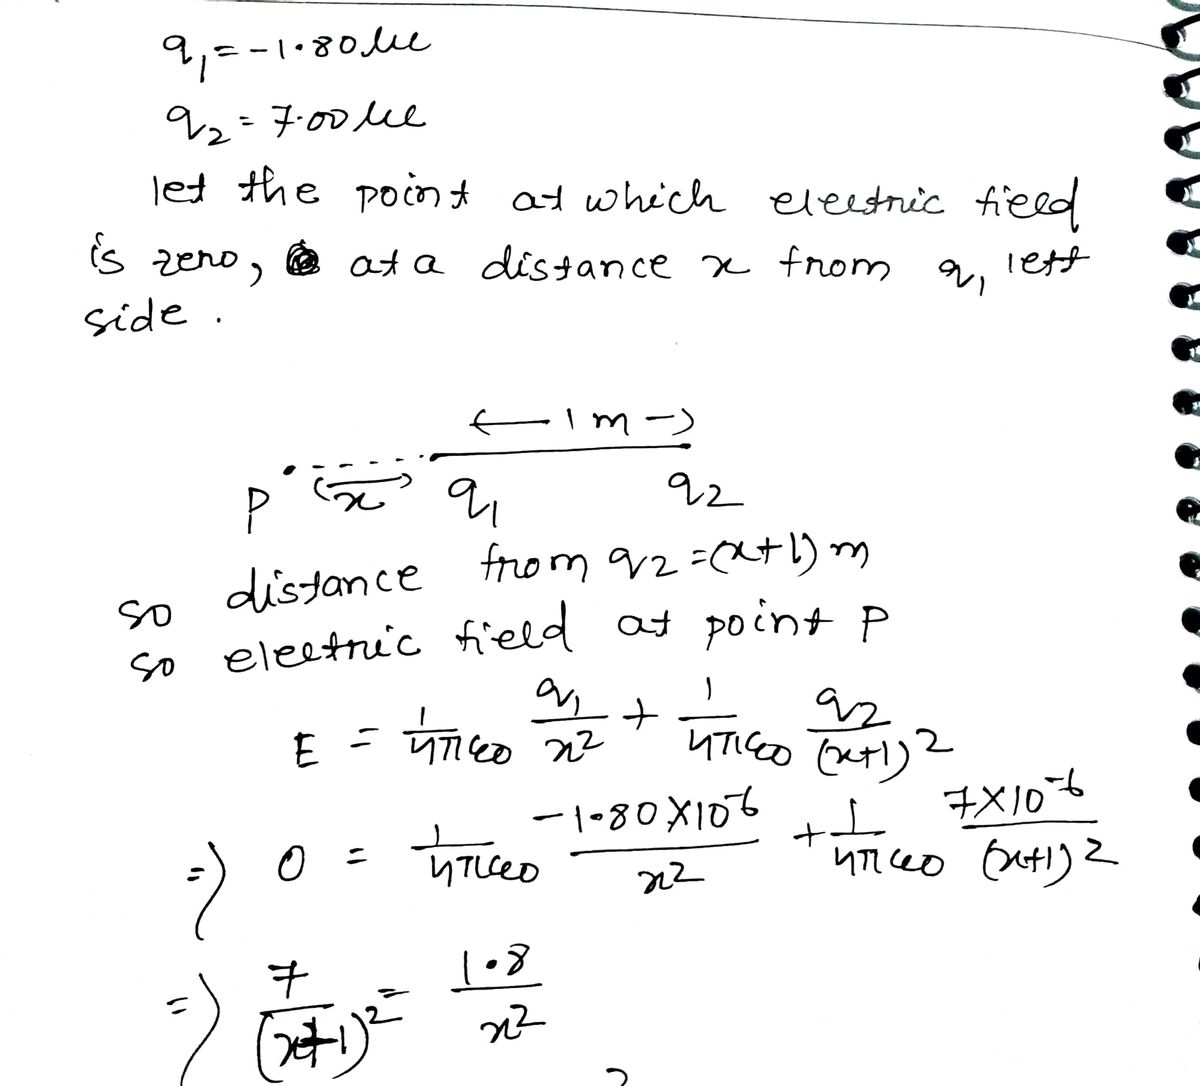 q₁ = -1.80 μc
q₂ = 7.00 μc
let the point at which electric field
is zero, at a distance x from q₁ left
side .
← 1 m →
P x q₁ q₂
so distance from q₂ = (x+1) m
so electric field at point P
E = 1/4π∈0 q₁/x² + 1/4π∈0 q₂/(x+1)²
⇒ 0 = 1/4π∈0 -1.80×10⁻⁶/x² + 1/4π∈0 7×10⁻⁶/(x+1)²
⇒ 7/(x+1)² = 1.8/x²